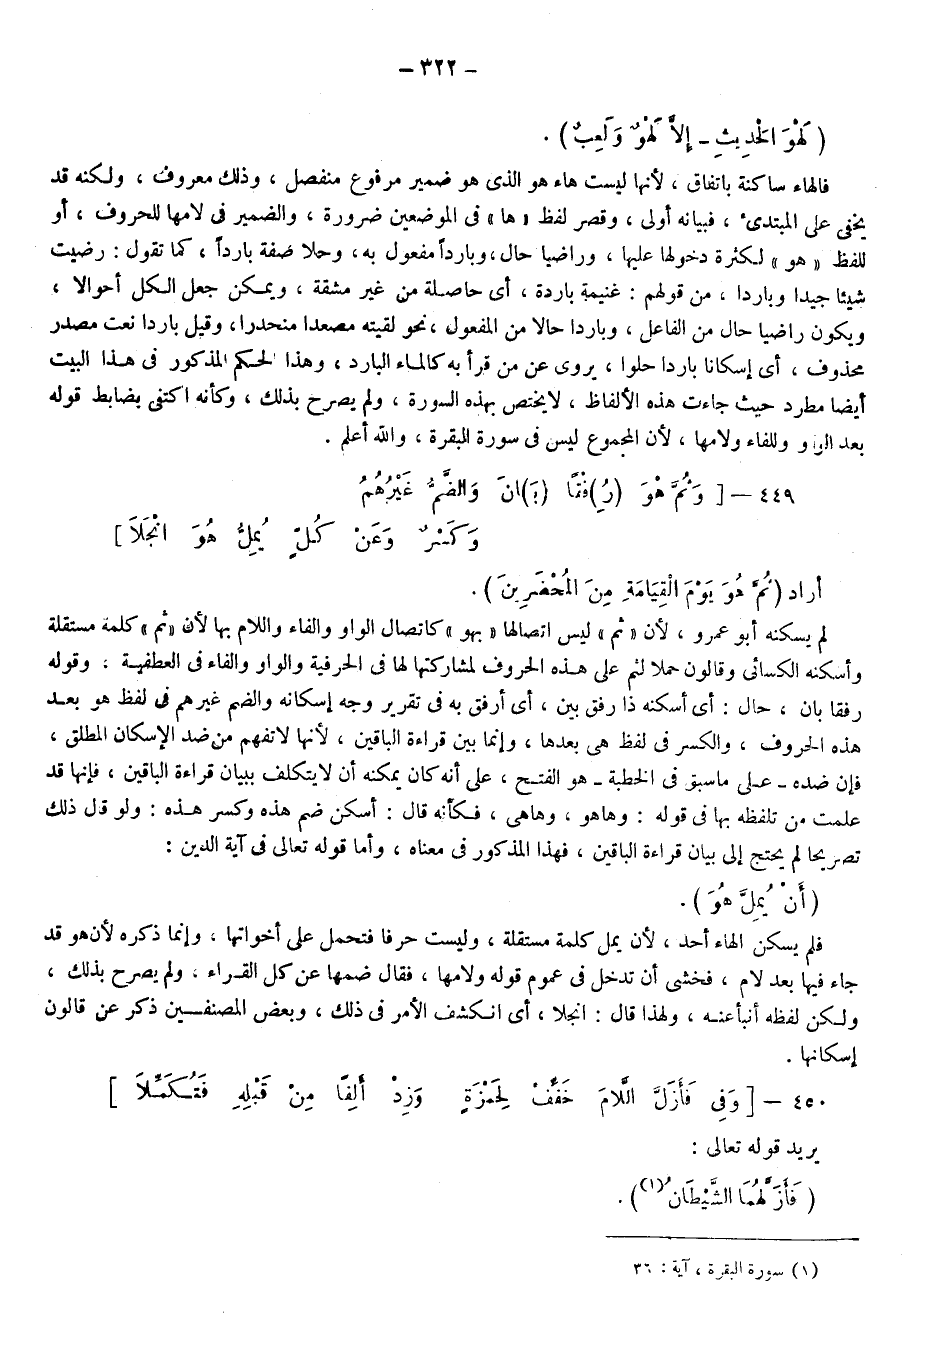 – ٣٢٢ –
( لَهْوَ الحَدِيثِ – إِلاَّ لَهْوٌ وَلَعِبٌ ) .
فالهاء ساكنة باتفاق ، لأنها ليست هاء هو الذى هو ضمير مرفوع منفصل ، وذلك معروف ، ولكنه قد
يخفى على المبتدىء ، فبيانه أولى ، وقصر لفظ « ها » فى الموضعين ضرورة ، والضمير فى لامها للحروف ، أو
للفظ « هو » لكثرة دخولها عليها ، وراضيا حال ، وبارداً مفعول به ، وحلا صفة بارداً ، كما تقول : رضيت
شيئا جيدا وباردا ، من قولهم : غنيمة باردة ، أى حاصلة من غير مشقة ، ويمكن جعل الكل أحوالا ،
ويكون راضيا حال من الفاعل ، وباردا حالا من المفعول ، نحو لقيته مصعدا منحدرا ، وقيل باردا نعت مصدر
محذوف ، أى إسكانا باردا حلوا ، يروى عن من قرأ به كالماء البارد ، وهذا الحكم المذكور فى هذا البيت
أيضا مطرد حيث جاءت هذه الألفاظ ، لايختص بهذه السورة ، ولم يصرح بذلك ، وكأنه اكتفى بضابط قوله
بعد الواو وللفاء ولامها ، لأن المجموع ليس فى سورة البقرة ، والله أعلم .
٤٤٩ – [ وَثُمَّ هْوَ (رِ)فْقًا (بَ)انَ وَالضَّمُّ غَيْرُهُمُ
وَكَسْرٌ وَعَنْ كُلٍّ يُمِلُّ هُوَ انْجَلَا ]
أراد ( ثُمَّ هُوَ يَوْمَ الْقِيَامَةِ مِنَ المُحْضَرِينَ ) .
لم يسكنه أبو عمرو ، لأن « ثم » ليس اتصالها « بهو » كاتصال الواو والفاء واللام بها لأن « ثم » كلمة مستقلة
وأسكنه الكسائى وقالون حملا لثم على هذه الحروف لمشاركتها لها فى الحرفية والواو والفاء فى العطفية : وقوله
رفقا بان ، حال : أى أسكنه ذا رفق بين ، أى أرفق به فى تقرير وجه إسكانه والضم غيرهم فى لفظ هو بعد
هذه الحروف ، والكسر فى لفظ هى بعدها ، وإنما بين قراءة الباقين ، لأنها لاتفهم من ضد الإسكان المطلق ،
فإن ضده – على ماسبق فى الخطبة – هو الفتح ، على أنه كان يمكنه أن لايتكلف ببيان قراءة الباقين ، فإنها قد
علمت من تلفظه بها فى قوله : وهاهو ، وهاهى ، فكأنه قال : أسكن ضم هذه وكسر هذه : ولو قال ذلك
تصريحا لم يحتج إلى بيان قراءة الباقين ، فهذا المذكور فى معناه ، وأما قوله تعالى فى آية الدين :
( أَنْ يُمِلَّ هُوَ ) .
فلم يسكن الهاء أحد ، لأن يمل كلمة مستقلة ، وليست حرفا فتحمل على أخواتها ، وإنما ذكره لأن هو قد
جاء فيها بعد لام ، فخشى أن تدخل فى عموم قوله ولامها ، فقال ضمها عن كل القراء ، ولم يصرح بذلك ،
ولكن لفظه أنبأ عنه ، ولهذا قال : انجلا ، أى انكشف الأمر فى ذلك ، وبعض المصنفين ذكر عن قالون
إسكانها .
٤٥٠ – [ وَفِى فَأَزَلَّ اللَّامَ خَفِّفْ لِحَمْزَةٍ وَزِدْ أَلِفًا مِنْ قَبْلِهِ فَتُكَمِّلاَ ]
يريد قوله تعالى :
( فَأَزَلَّهُمَا الشَّيْطَانُ(١) ) .
(١) سورة البقرة ، آية : ٣٦